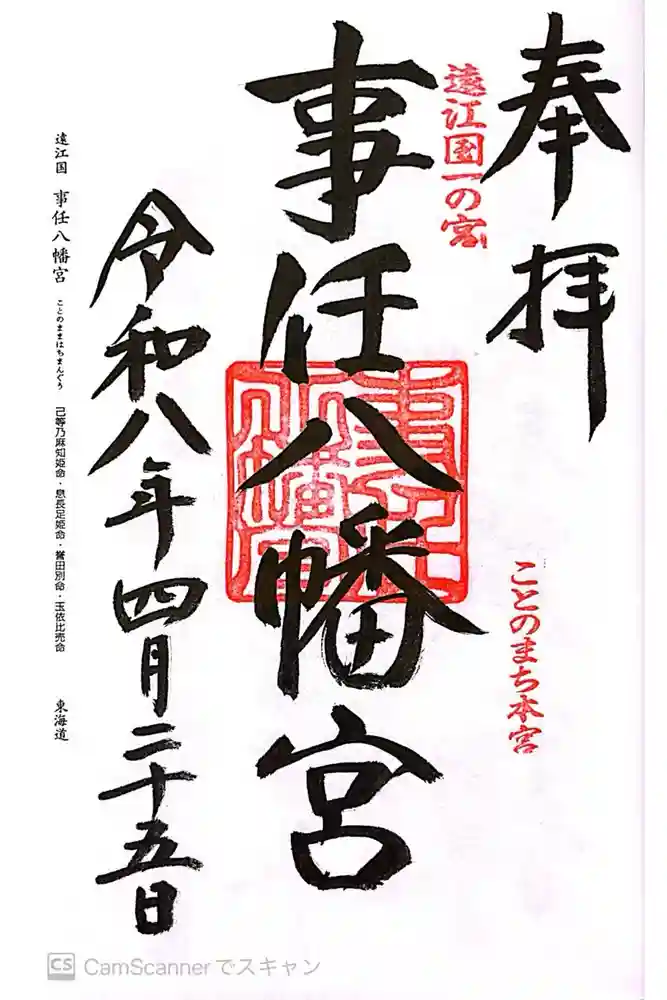 奉拝
遠江国一の宮
ことのまち本宮
事任八幡宮
事任八幡宮
令和八年四月二十五日
遠江国 事任八幡宮 ことのままはちまんぐう 己等乃麻知姫命・息長足姫命・誉田別命・玉依比売命 東海道
CS CamScannerでスキャン